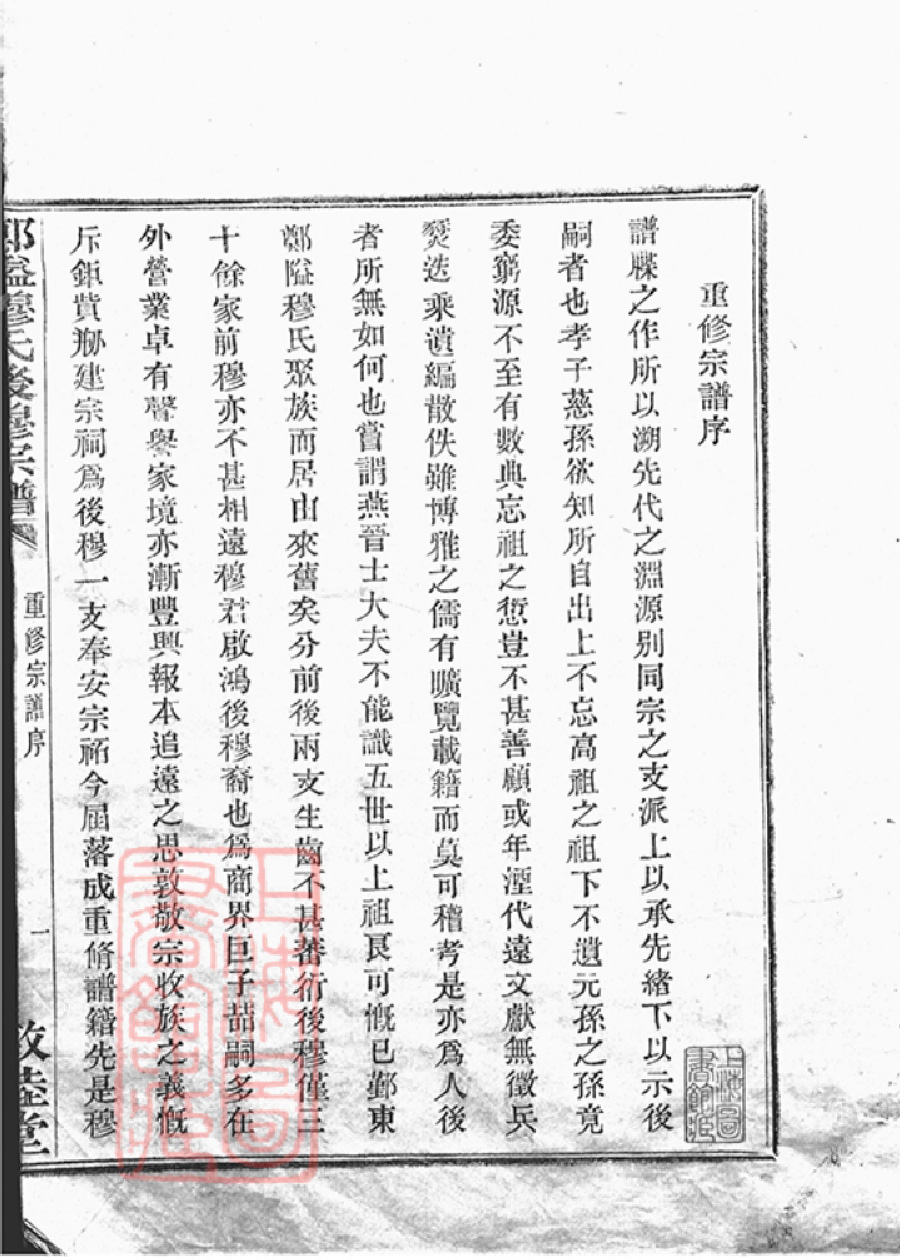 重修宗譜序
譜牒之作所以溯先代之淵源别同宗之支派上以承先緒下以示後
嗣者也孝子慈孫欲知所自出上不忘高祖之祖下不遺元孫之孫竟
委窮源不至有數典忘祖之愆豈不甚善顧或年湮代遠文獻無徵兵
燹迭乘遺編散佚雖博雅之儒有曠覽載籍而莫可稽考是亦為人後
者所無如何也嘗謂燕晉士大夫不能識五世以上祖良可慨已鄞東
鄭隘穆氏聚族而居由來舊矣分前後兩支生齒不甚蕃衍後穆僅三
十餘家前穆亦不甚相遠穆君啟鴻後穆裔也為商界巨子喆嗣多在
外營業卓有聲譽家境亦漸豐興報本追遠之思敦敬宗收族之義慨
斥鉅貲剏建宗祠爲後穆一支奉安宗祏今屆落成重脩譜籍先是穆
鄭隘穆氏後穆宗譜
重修宗譜序
一
敦睦堂
上海圖書館藏
上海圖書館藏